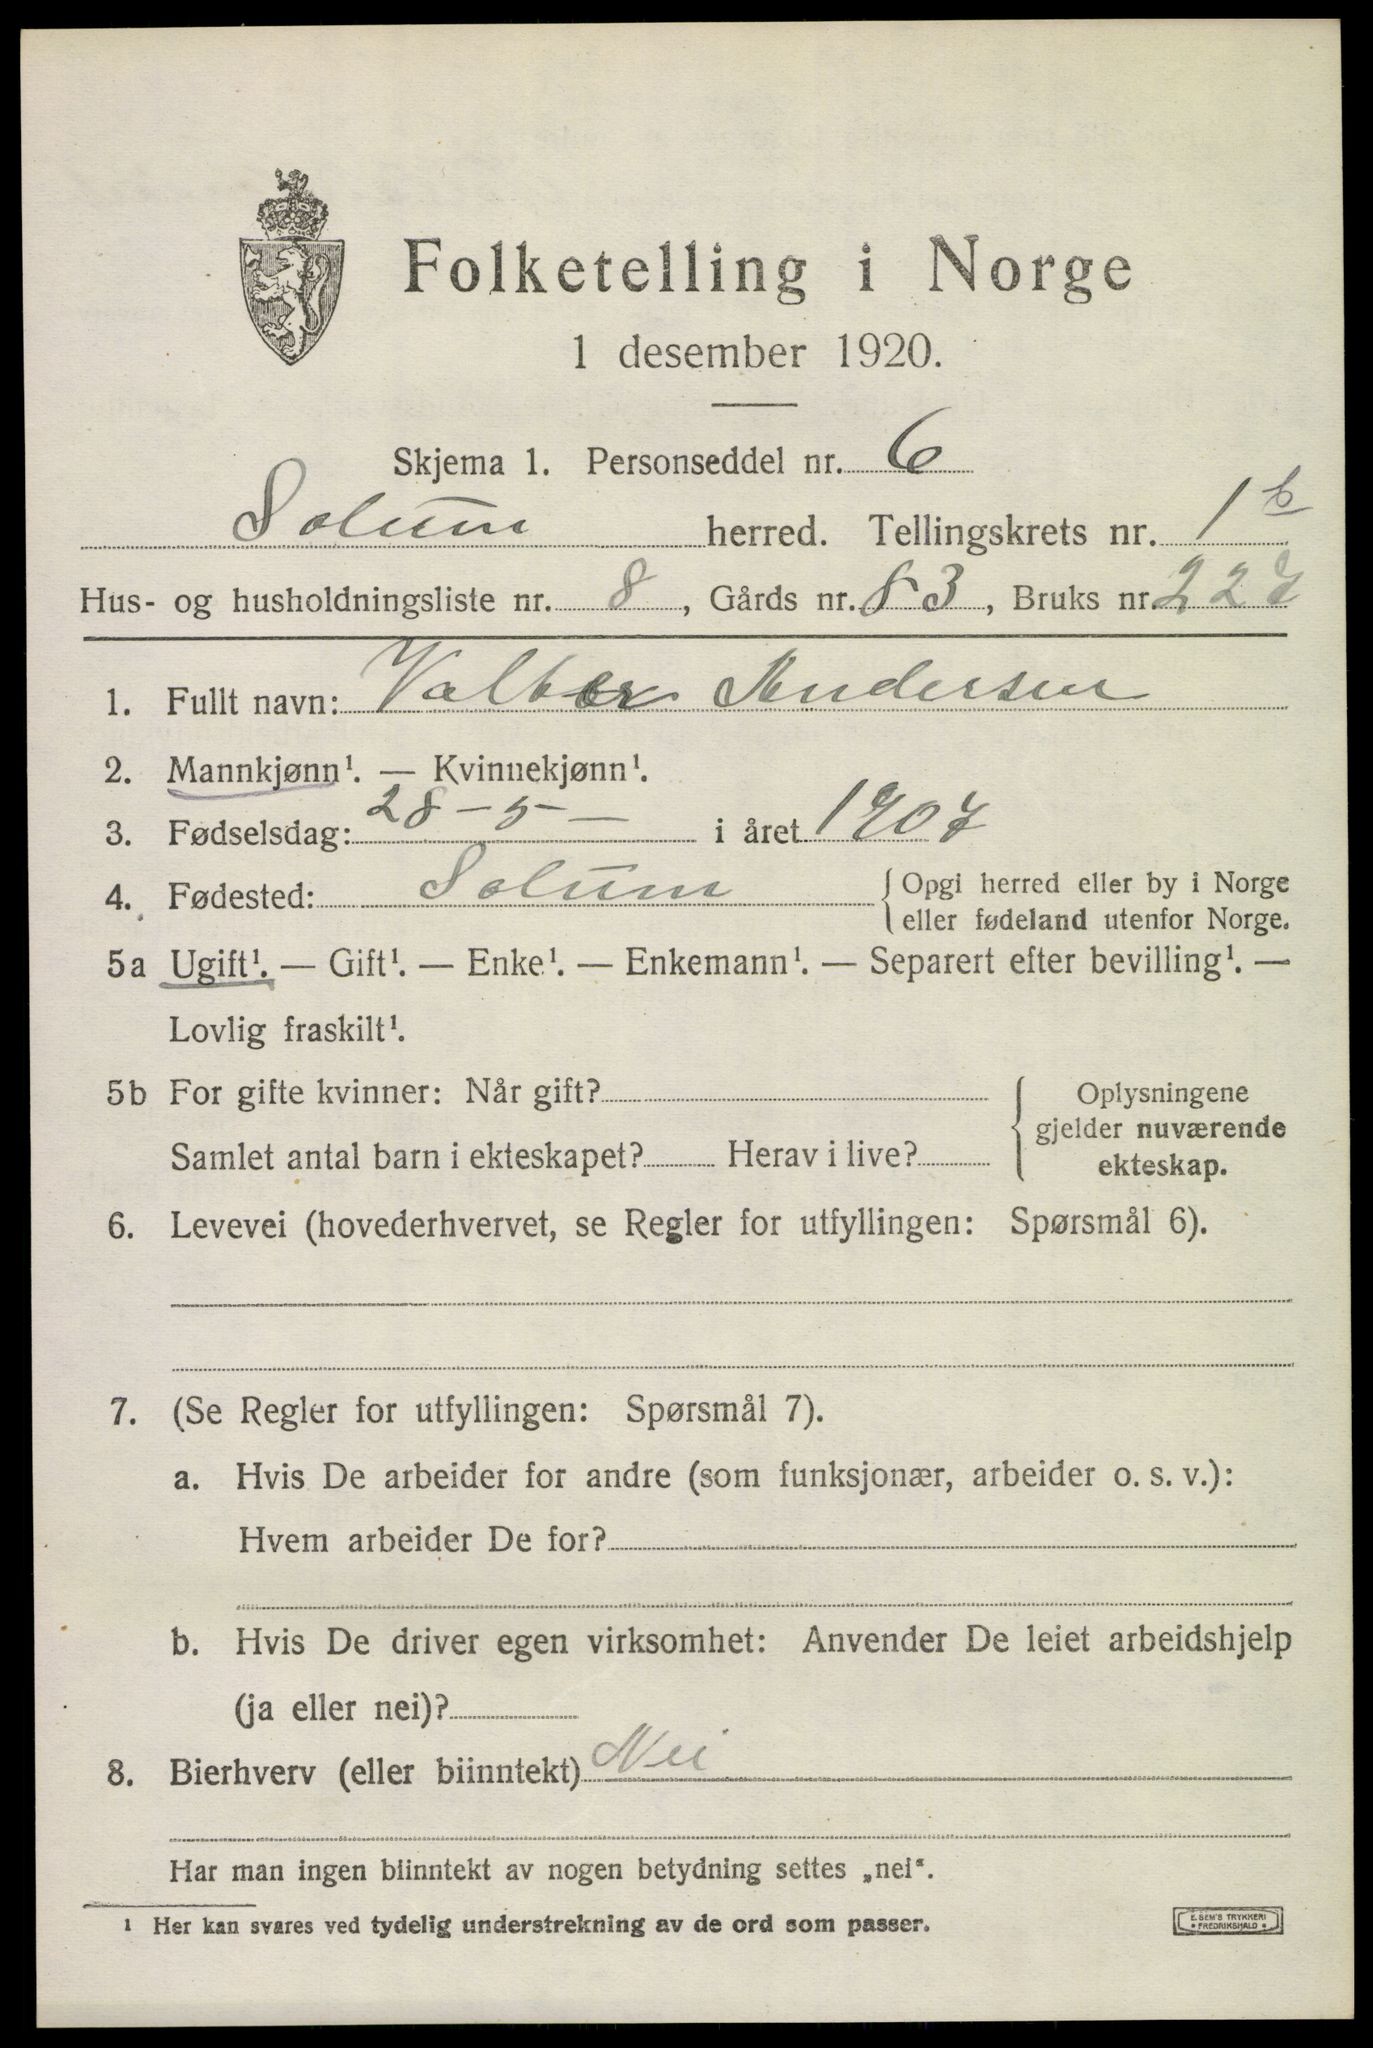 Folketelling i Norge
1 desember 1920.
Skjema 1. Personseddel nr. 6
Solum herred. Tellingskrets nr. 1 b
Hus- og husholdningsliste nr. 8, Gårds nr. 83, Bruks nr. 227
1. Fullt navn: Valter Andersen
2. Mannkjønn¹. — Kvinnekjønn¹.
3. Fødselsdag: 28 - 5 - i året 1907
4. Fødested: Solum { Opgi herred eller by i Norge
eller fødeland utenfor Norge.
5a Ugift¹. — Gift¹. — Enke¹. — Enkemann¹. — Separert efter bevilling¹. —
Lovlig fraskilt¹.
5b For gifte kvinner: Når gift? { Oplysningene
gjelder nuværende
Samlet antal barn i ekteskapet? Herav i live? ekteskap.
6. Levevei (hovederhvervet, se Regler for utfyllingen: Spørsmål 6).
7. (Se Regler for utfyllingen: Spørsmål 7).
a. Hvis De arbeider for andre (som funksjonær, arbeider o. s. v.):
Hvem arbeider De for?
b. Hvis De driver egen virksomhet: Anvender De leiet arbeidshjelp
(ja eller nei)?
8. Bierhverv (eller biinntekt) Nei
Har man ingen biinntekt av nogen betydning settes „nei“.
¹ Her kan svares ved tydelig understrekning av de ord som passer.
E. SEM'S TRYKKERI
• FREDRIKSHALD •